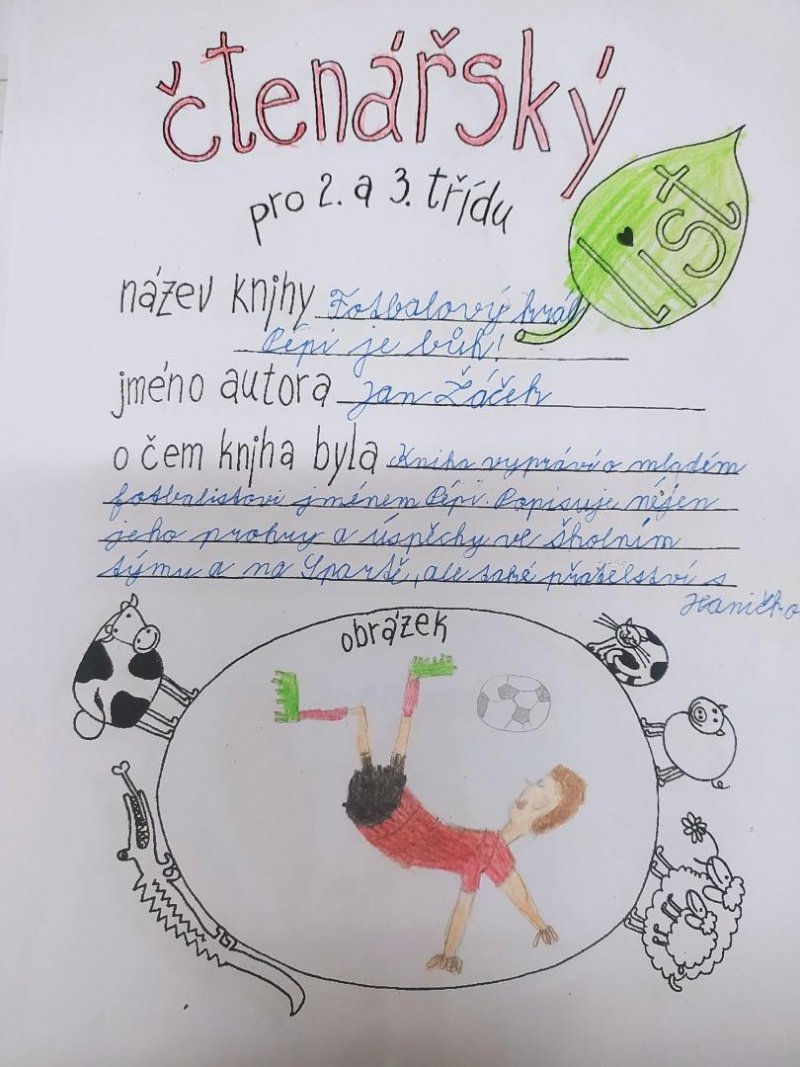 čtenářský
list
pro 2. a 3. třídu
název knihy Fotbalový král
Pépi je bůh!
jméno autora Jan Žáček
o čem kniha byla Kniha vypráví o mladém
fotbalistovi jménem Pépi. Popisuje nejen
jeho prohry a úspěchy ve školním
týmu a na Spartě, ale také přátelství s
Haničko
obrázek